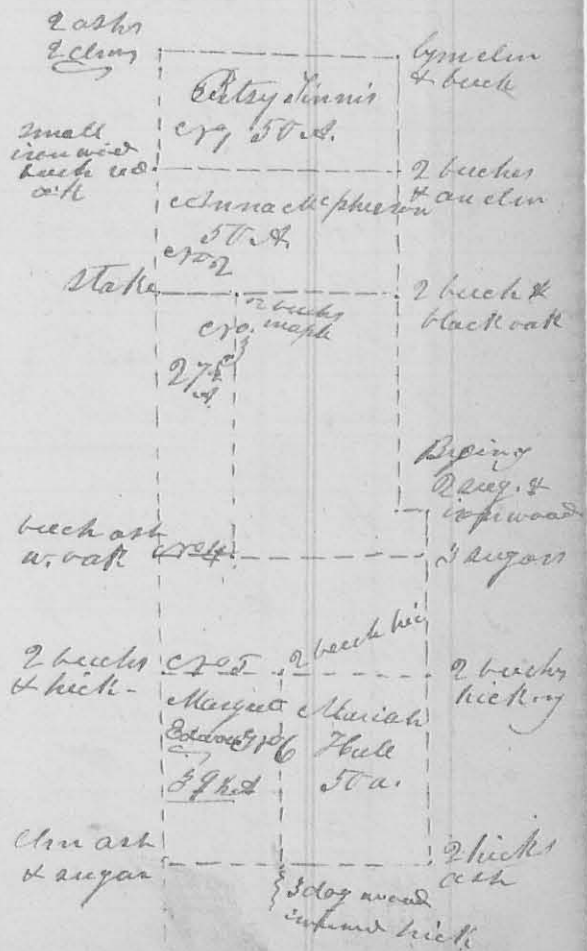 2 ashs
2 elms
lynn elm
& beech
Betsy Tinnis
No 1 50 A.
small
ironwood
beech red
oak
2 beeches
& an elm
Anna McPherson
50 A.
No 2
Stake
2 beech &
black oak
2 beechs
maple
No. 3
27 A
Begining
2 sug. &
ironwood
beech ash
w. oak
No 4
3 sugars
2 beechs
& hick-
No 5
2 beech hic
2 beechs
hickory
Margret
No 6
39 A
Mariah
Hull
50 a.
elm ash
& sugar
2 hicks
ash
3 dog wood
ironwood hick